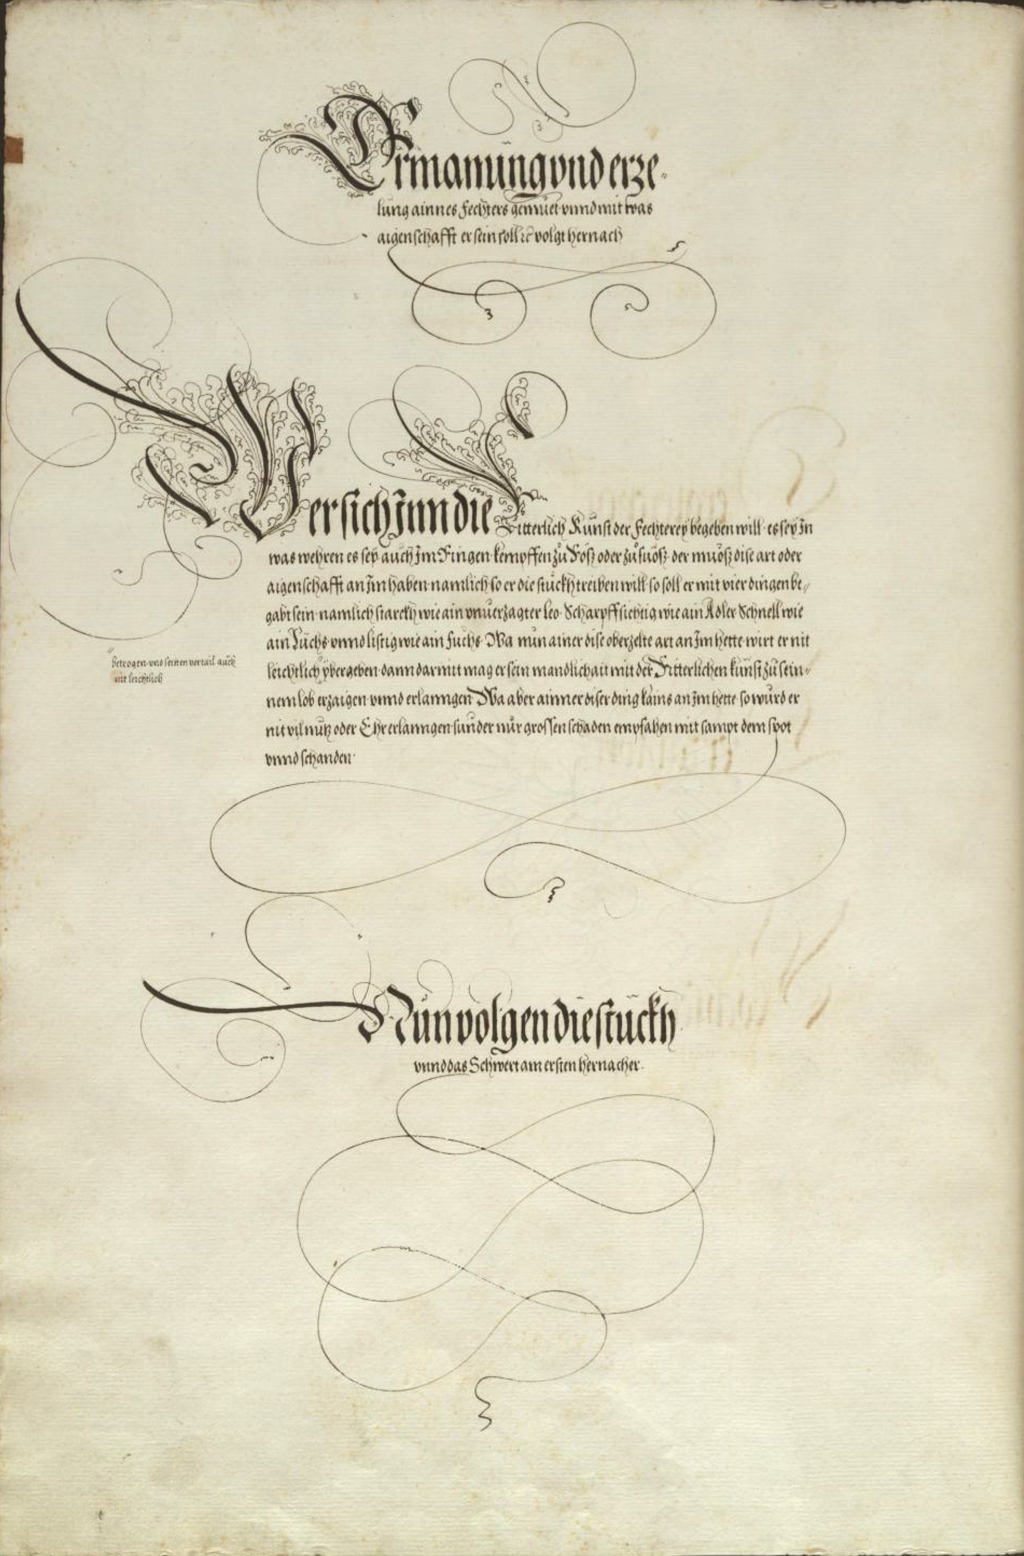 Ermanung vnd erze-
lung ainnes Fechters gemüet vnnd mit was
aigenschafft er sein soll ꝛc volgt hernach
Wer sich Inn die Ritterlich Kunst der Fechterey begeben will es sey In
was wehren es sey auch Im Ringen kempffen zu Roß oder zu fuoß der muoß dise art oder
aigenschafft an Im haben namlich so er die stuckh treiben will so soll er mit vier dingen be-
gabt sein namlich starckh wie ain vnuerzagter leo Scharpffsichtig wie ain Adler Schnell wie
ain Luchs vnnd listig wie ain fuchs Wa nun ainer dise oberzelte art an Im hette wirt er nit
betrogen vnd seinen vortail auch
nit leichtlich
leichtlich ybergeben dann darmit mag er sein mandlichait mit der Ritterlichen kunst zu sein-
nem lob erzaigen vnnd erlanngen Wa aber ainner diser ding kains an Im hette so wurd er
nit vil nutz oder Ehr erlanngen sunder nur grossen schaden empfahen mit sampt dem spot
vnnd schanden
Nun volgen die stuckh
vnnd das Schwert am ersten hernacher